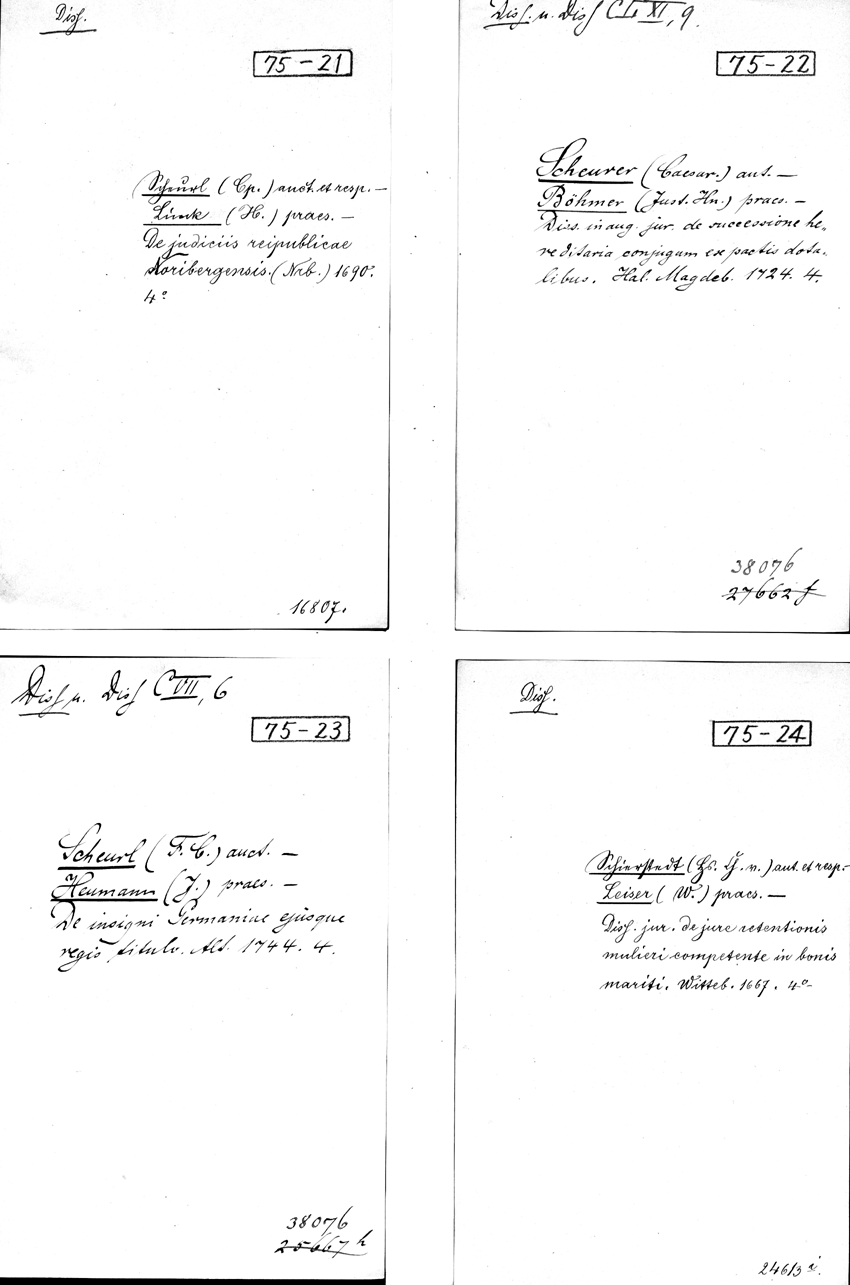 Diss.
75-21
Scheurl (Cp.) auct. et resp. —
Linck (H.) praes. —
De judiciis reipublicae
Noribergensis. (Nrb.) 1690.
4°
16807.
Diss. u. Diss CL XI, 9.
75-22
Scheurer (Caesar.) aut. —
Böhmer (Just. Hn.) praes. —
Diss. inaug. jur. de successione he-
reditaria conjugam ex pactis dota-
libus. Hal. Magdeb. 1724. 4.
38076
27662 f
Diss u. Diss C VII, 6
75-23
Scheurl (F. C.) auct. —
Heumann (J.) praes. —
De insigni Germaniae ejusque
regis titulo. Alt. 1744. 4.
38076
25667 h
Diss.
75-24
Schierstedt (Hs. G. v.) aut. et resp.-
Leiser (W.) praes. —
Diss. jur. de jure retentionis
mulieri competente in bonis
mariti. Witteb. 1667. 4°-
24613 i.